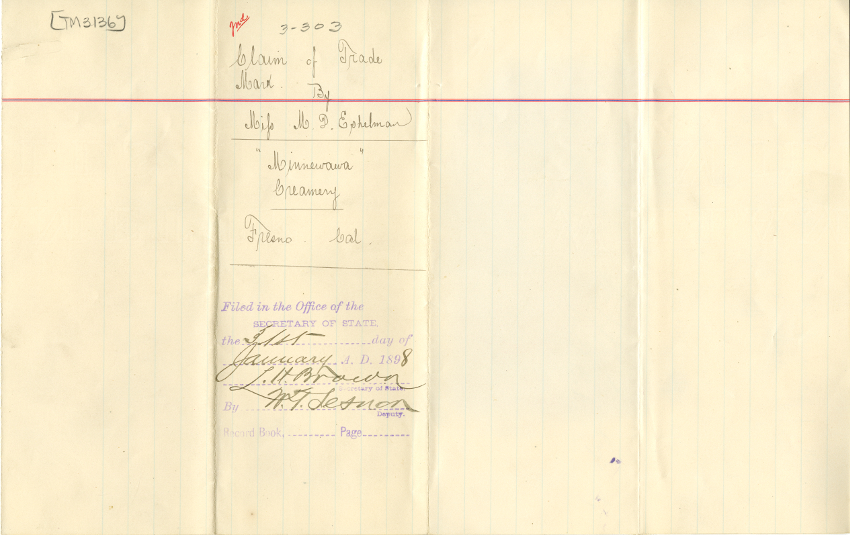 [TM3136]
Ind.
3-303
Claim of Trade
Mark.
By
Miss M. D. Eshelman
"Minnewawa"
Creamery
Fresno. Cal.
Filed in the Office of the
SECRETARY OF STATE.
the 31st day of
January A. D. 1898
L. H. Brown
Secretary of State.
By W. T. Sesnon
Deputy.
Record Book, Page